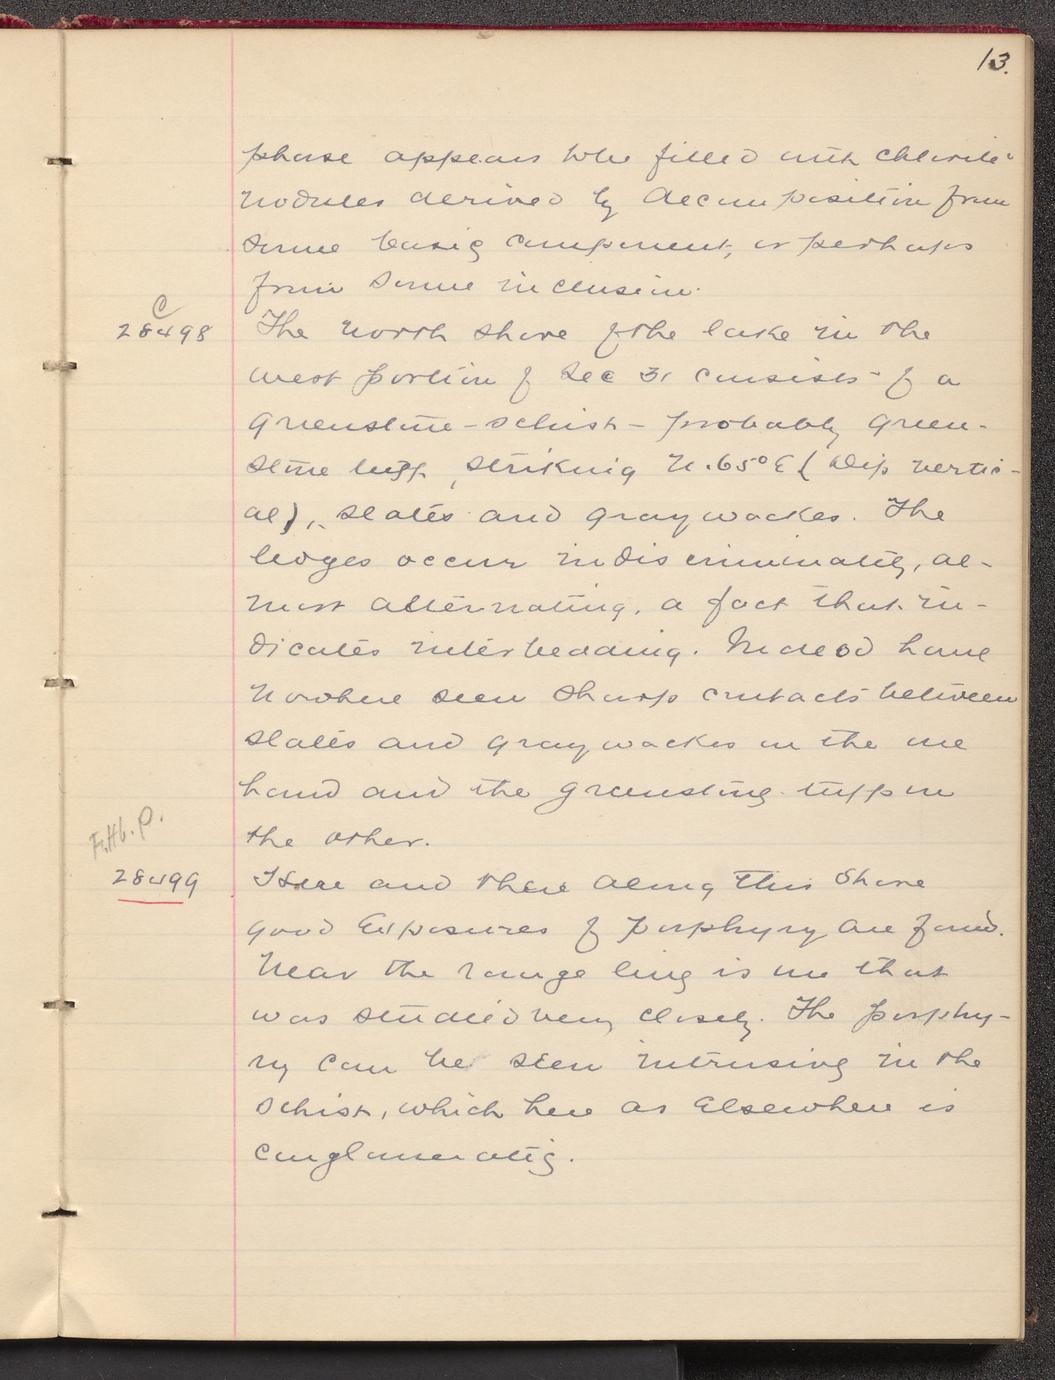 13.
phase appears to be filled with chloritic
nodules derived by decomposition from
some basic component, or perhaps
from some inclusion.
C
28498 The north shore of the lake in the
west portion of Sec 31 consists of a
greenstone-schist - probably green-
stone tuff, striking N. 65° E (Dip vertic-
al), slates and graywackes. The
ledges occur indiscriminately, al-
most alternating, a fact that in-
dicates interbedding. Indeed have
nowhere seen sharp contacts between
slates and graywackes on the one
hand and the greenstone tuff on
the other.
F. Hb. P.
28499 Here and there along this shore
good exposures of porphyry are found.
Near the range line is one that
was studied very closely. The porphy-
ry can be seen intrusive in the
schist, which here as elsewhere is
conglomeratic.